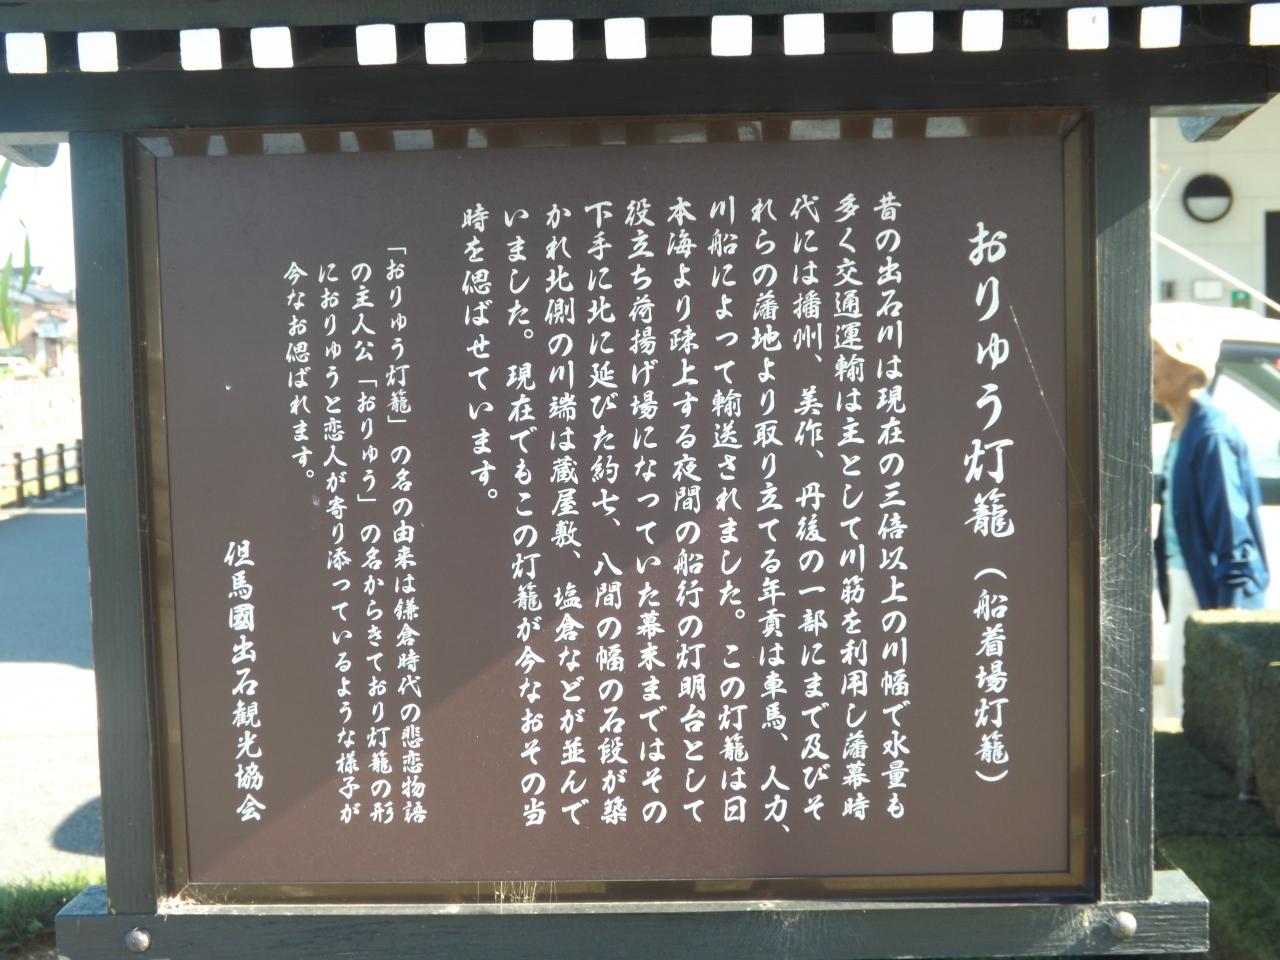 おりゅう灯籠（船着場灯籠）
昔の出石川は現在の三倍以上の川幅で水量も
多く交通運輸は主として川筋を利用し藩幕時
代には播州、美作、丹後の一部にまで及びそ
れらの藩地より取り立てる年貢は車馬、人力、
川船によって輸送されました。この灯籠は日
本海より疎上する夜間の船行の灯明台として
役立ち荷揚げ場になっていた幕末まではその
下手に北に延びた約七、八間の幅の石段が築
かれ北側の川端は蔵屋敷、塩倉などが並んで
いました。現在でもこの灯籠が今なおその当
時を偲ばせています。
「おりゅう灯籠」の名の由来は鎌倉時代の悲恋物語
の主人公「おりゅう」の名からきており灯籠の形
におりゅうと恋人が寄り添っているような様子が
今なお偲ばれます。
但馬國出石観光協会